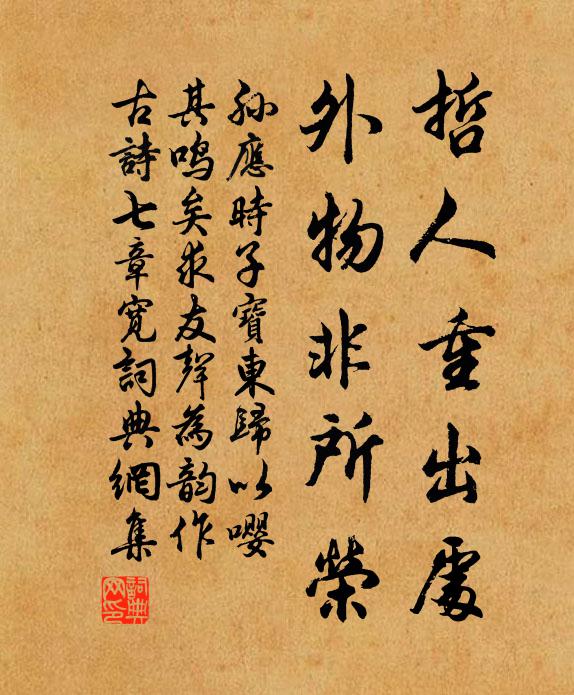 哲人重出處
外物非所榮
孫應時子寶東歸以嚶
其鳴矣求友聲為韵作
古詩七章寬詞典網集
詞典網印